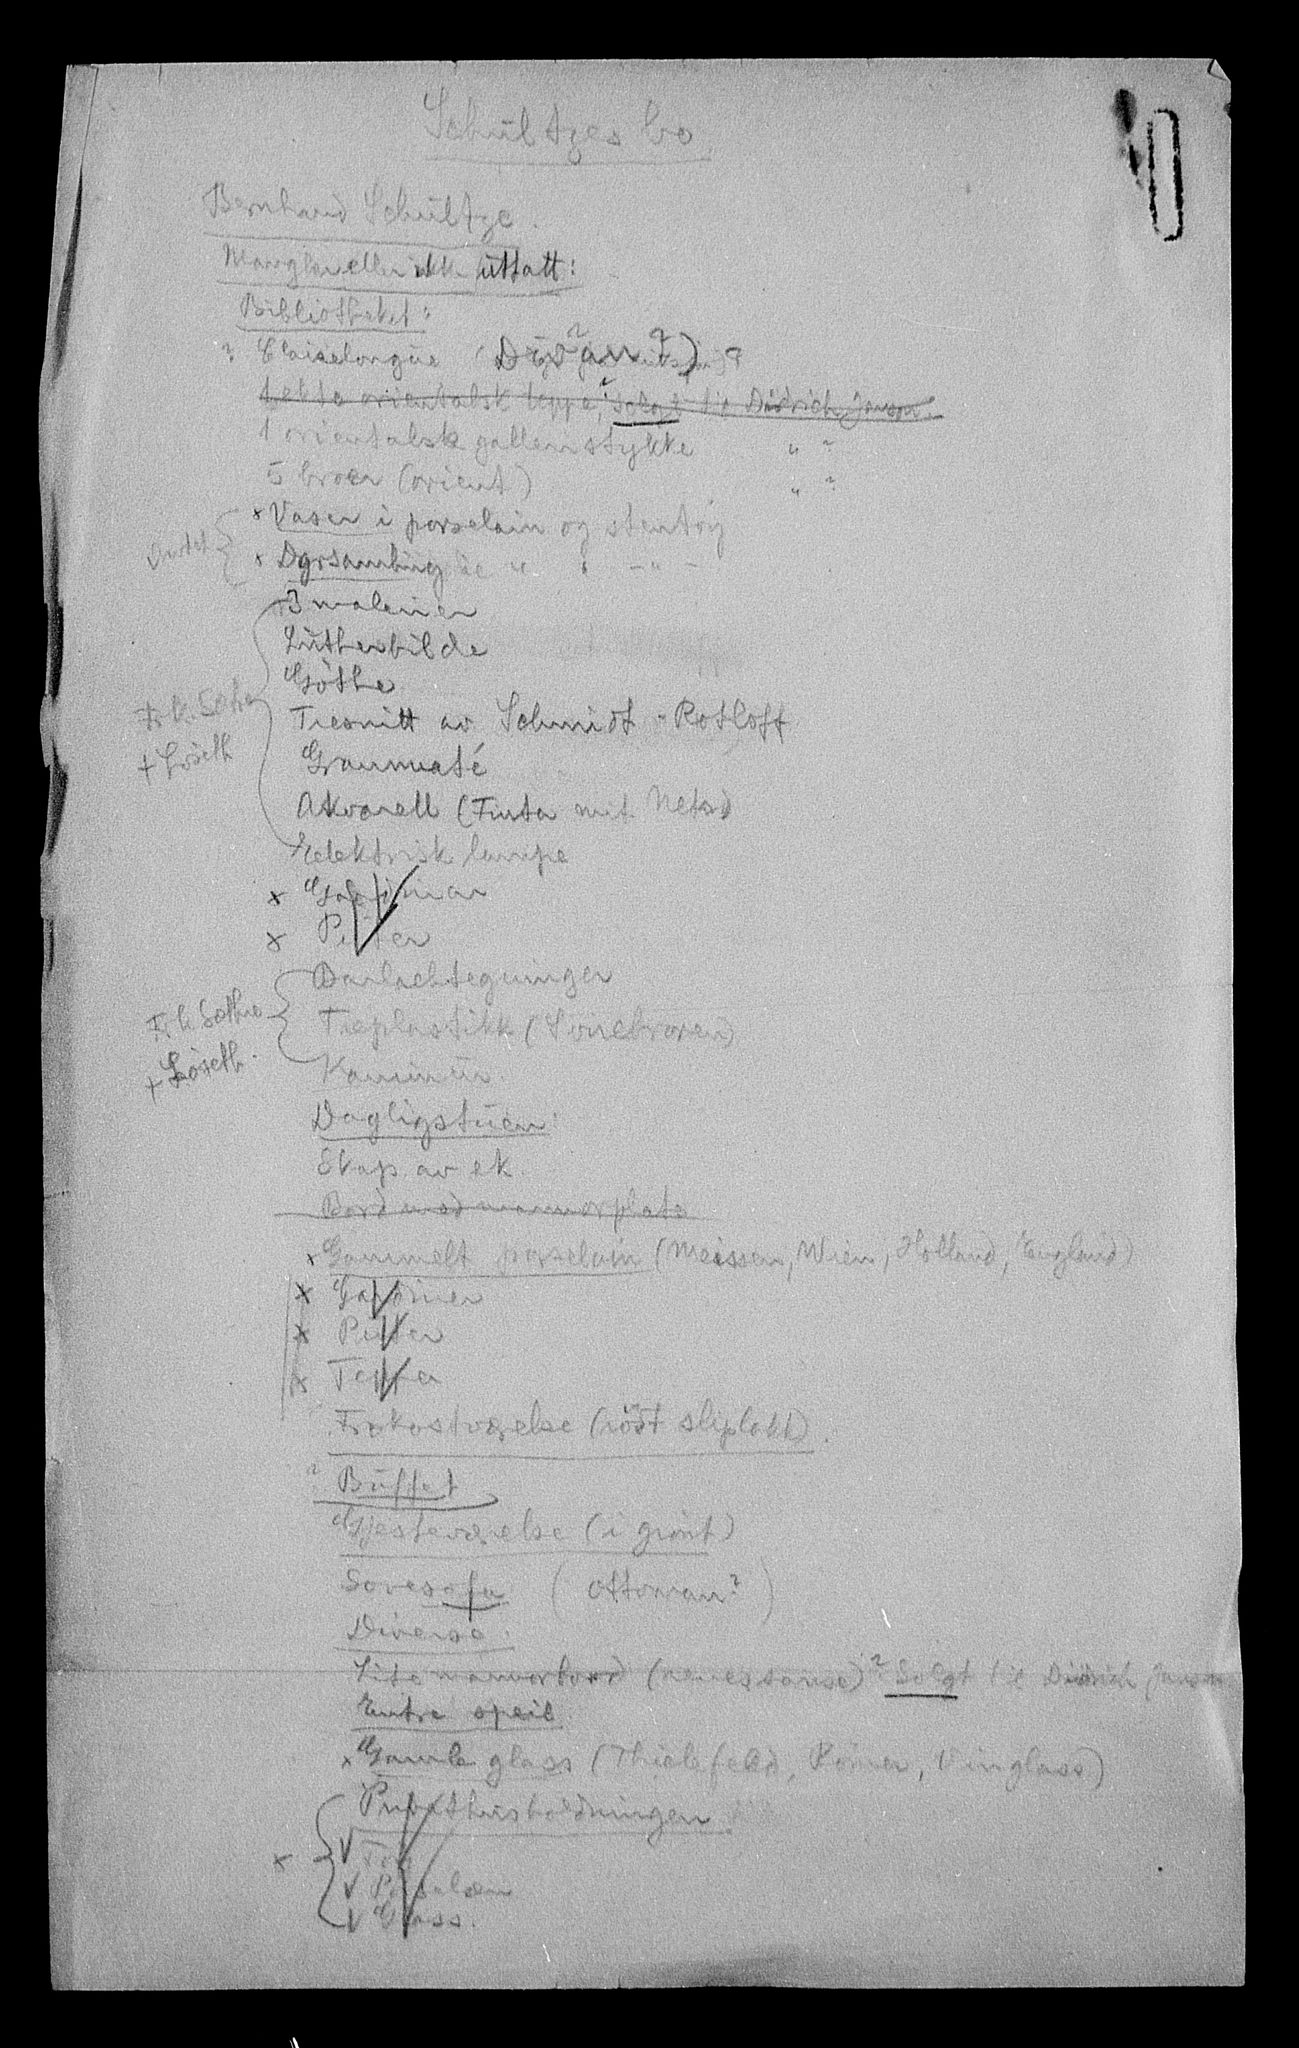 Schultzes bo.
Bernhard Schultze.
Mangler eller ikke uttatt:
Bibliotheket:
? Chaiselongue (Divan?) ?
1 ekte orientalsk teppe, solgt til Didrich Jensen.
1 orientalsk galleristykke " ?
5 broer (orient) " ?
x Vaser i porselain og stentöy
x Dyrsamling de " " - " -
3 malerier
Lutherbilde
Göthe
Tresnitt av Schmidt-Rotloff
Akvarell (Finta mit Netz)
Elektrisk lampe
Frk. Sethre
+ Löseth
x Gardiner
x Putter
Barlachtegninger
Treplastikk
Kaminur.
Frk. Sethre
+ Löseth.
Dagligstuen:
Skap av ek.
Bord med marmorplate
x Gammelt porselain (Meissen, Wien, Holland, England)
x Gardiner
x Putter
x Tepper
Frokostværelse (rödt sliplakk).
? Buffet
Gjesteværelse (i grönt)
Sovesofa (Ottoman?)
Diverse:
Lite marmorbord (renessanse)? Solgt til Didrich Jensen
Entre speil
x Gamle glass (Thielefeld, Römer, Vinglass)
Privathusholdningen.
x
Töy
Porselæn
Glass.